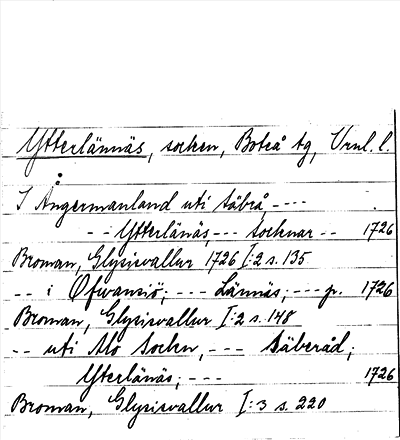 Ytterlännäs, socken, Boteå tg, Vrnl. l.
I Ångermanland uti Säbrå ----
-- Ytterlänäs, --- Socknar -- 1726
Broman, Glysisvallur 1726 I:2 s. 135
-- i Øfwansiö; --- Lännäs; --- p. 1726
Broman, Glysisvallur I:2 s. 148
-- uti Alö Socken, --- Säberåd;
Ytterlänäs; --- 1726
Broman, Glysisvallur I:3 s. 220